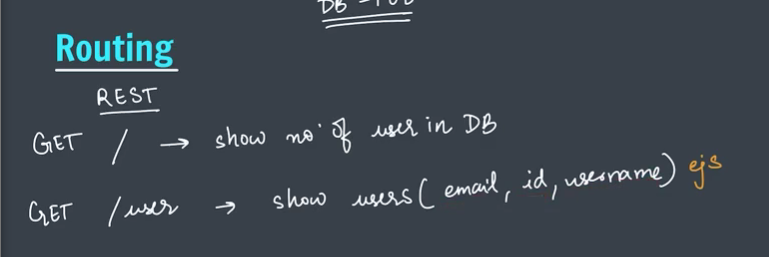 DB
Routing
REST
GET / → show no. of user in DB
GET /user → show users (email, id, username) ejs